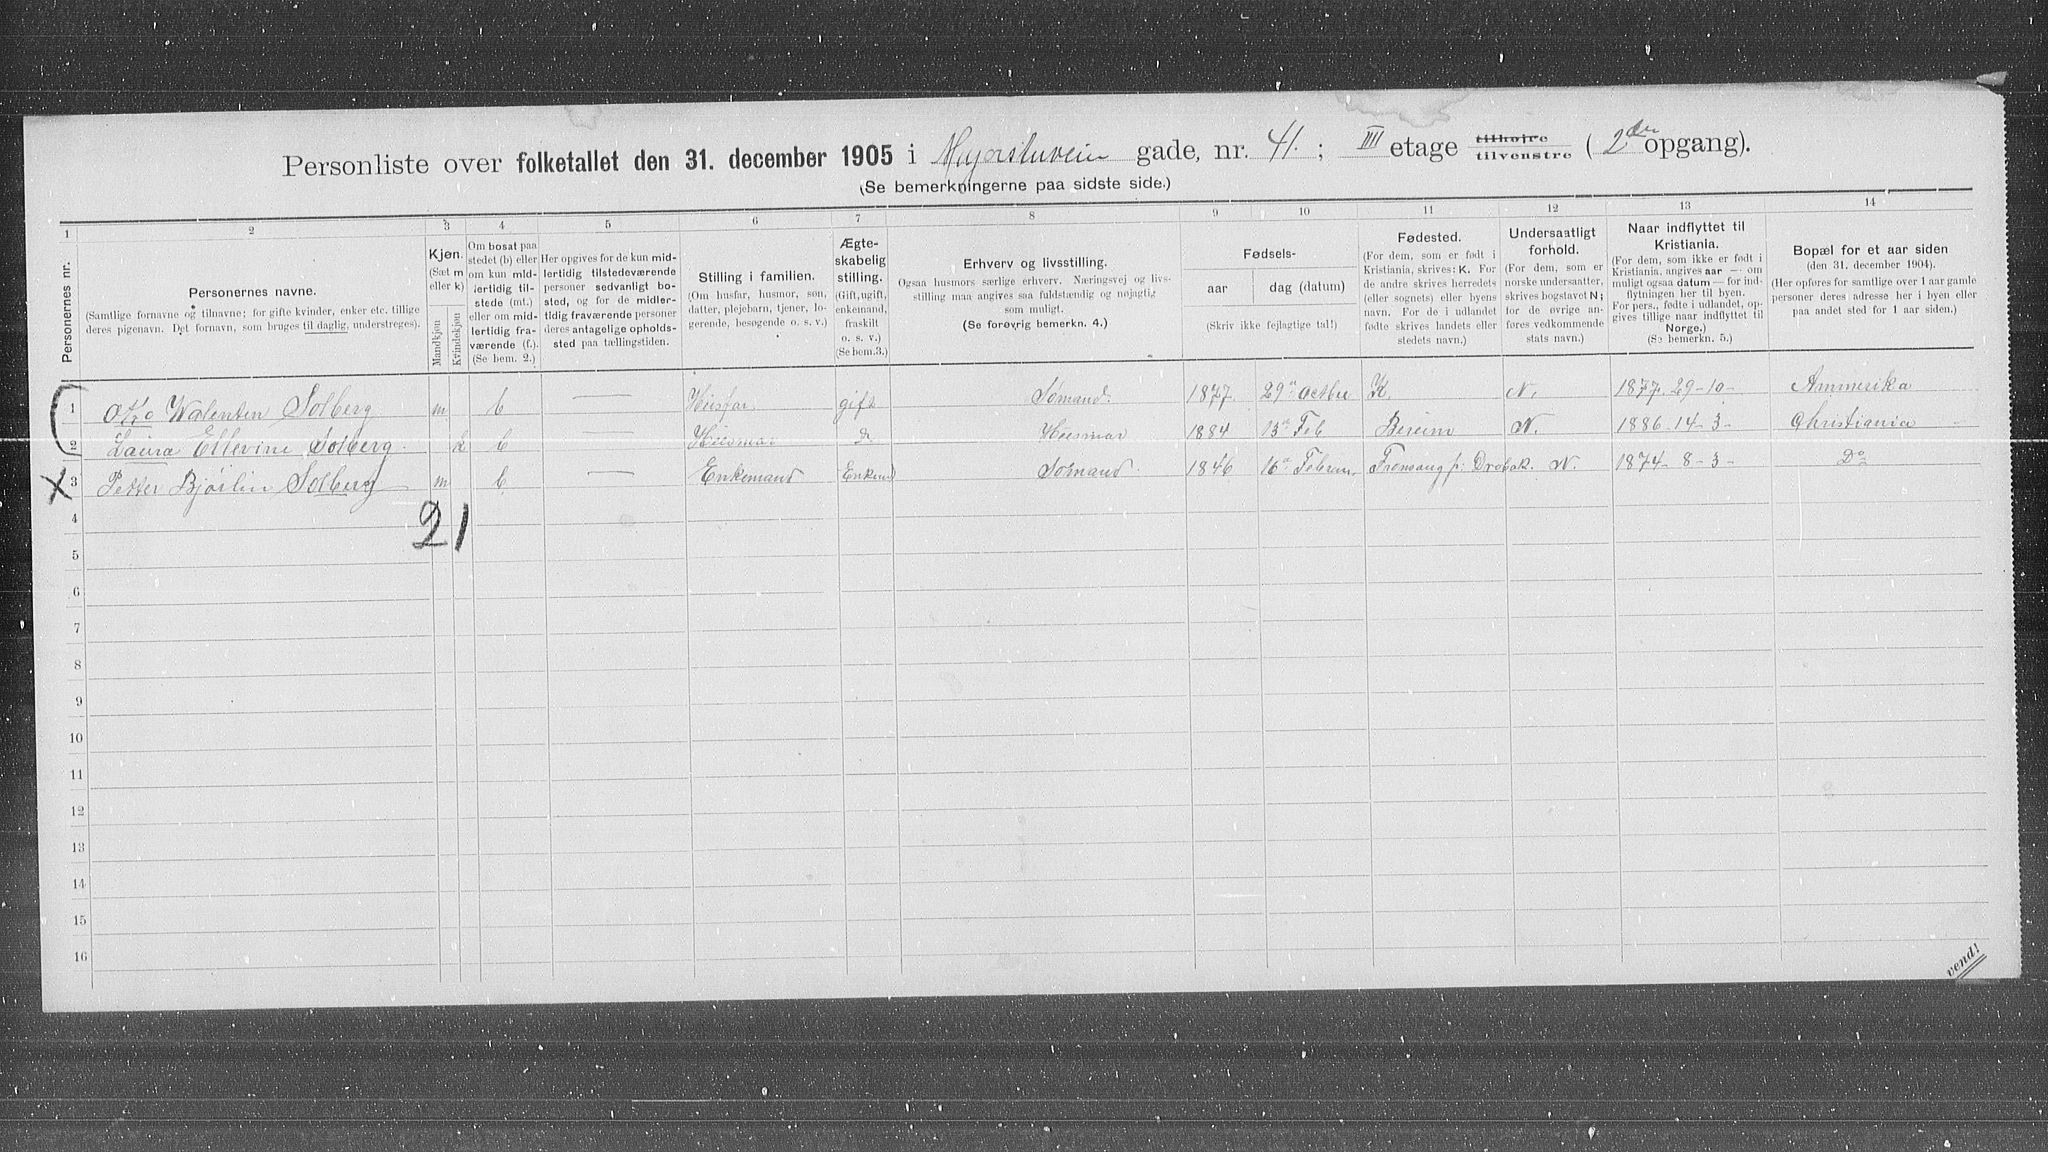 Personliste over folketallet den 31. december 1905 i Majorstuvein gade, nr. 41. ; III etage tilhøjre tilvenstre ( 2den opgang).
(Se bemerkningerne paa sidste side.)
1 2 3 4 5 6 7 8 9 10 11 12 13 14
Personernes nr.
Personernes navne.
(Samtlige fornavne og tilnavne; for gifte kvinder, enker etc. tillige
deres pigenavn. Det fornavn, som bruges til daglig, understreges).
Kjøn.
(Sæt m
eller k)
Mandkjøn
Kvindekjøn
Om bosat paa
stedet (b) eller
om kun mid-
lertidig til-
stede (mt.)
eller om mid-
lertidig fra-
værende (f.).
(Se bem. 2.)
Her opgives for de kun mid-
lertidig tilstedeværende
personer sedvanlig bo-
sted, og for de midler-
tidig fraværende personer
deres antagelige opholds-
sted paa tællingstiden.
Stilling i familien.
(Om husfar, husmor, søn,
datter, plejebarn, tjener, lo-
gerende, besøgende o. s. v.)
Ægte-
skabelig
stilling.
(Gift, ugift,
enkemand,
fraskilt
o. s. v.)
(Se bem. 3.)
Erhverv og livsstilling.
Ogsaa husmors særlige erhverv. Næringsvej og livs-
stilling maa angives saa fuldstændig og nøjagtig
som muligt.
(Se forøvrig bemerkn. 4.)
Fødsels-
aar
dag (datum)
(Skriv ikke fejlagtige tal!)
Fødested.
(For dem, som er født i
Kristiania, skrives: K. For
de andre skrives herredets
(eller sognets) eller byens
navn. For de i udlandet
fødte skrives landets eller
stedets navn.)
Undersaatligt
forhold.
(For dem, som er
norske undersaatter,
skrives bogstavet N;
for de øvrige an-
føres vedkommende
stats navn.)
Naar indflyttet til
Kristiania.
(For dem, som ikke er født i
Kristiania, angives aar — om
muligt ogsaa datum — for ind-
flytningen her til byen.
For pers., fødte i udlandet, op-
gives tillige naar indflyttet til
Norge.)
(Se bemerkn. 5.)
Bopæl for et aar siden
(den 31. december 1904).
(Her opføres for samtlige over 1 aar gamle
personer deres adresse her i byen eller
paa andet sted for 1 aar siden.)
1 Otto Walenten Solberg m b — Huusfar gift Sømand. 1877. 29n Octbr K. N. 1877. 29-10- Ammerika
2 Laura Ellevine Solberg. k b — Huusmor Do Huusmor 1884 13n Feb N. 1886-14-3- Christiania
X 3 Petter Bjørlin Solberg m b — Enkemand Enkem Sømand 1846 16n Februar Drøbak. N. 1874-8-3- Do
21
4
5
6
7
8
9
10
11
12
13
14
15
16
vend!